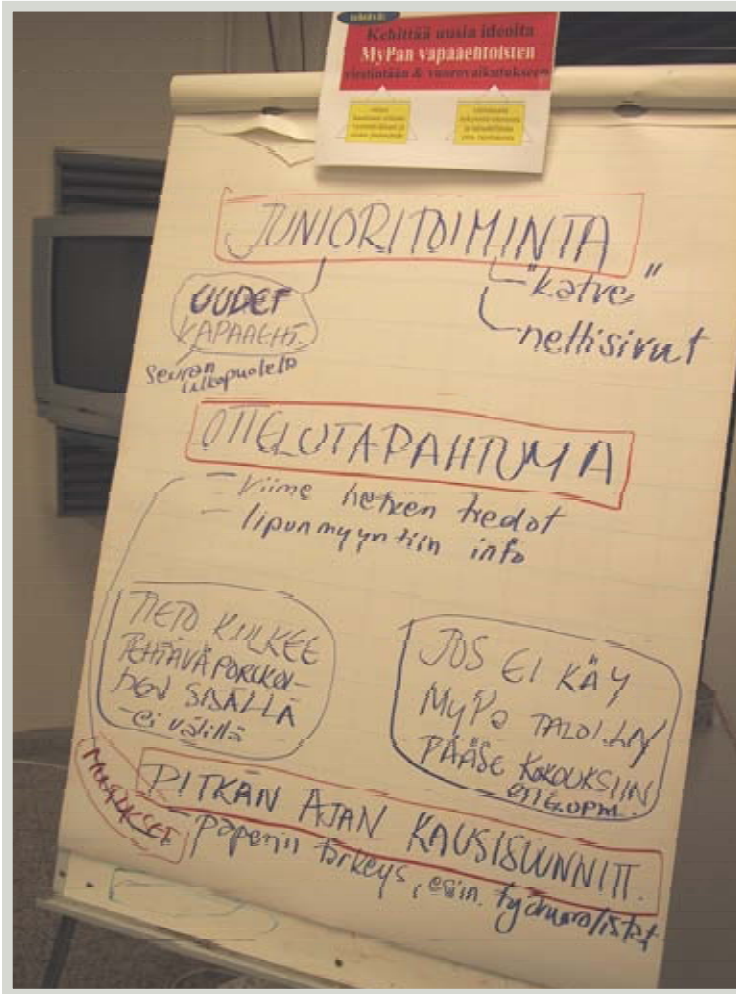 Kehittää uusia ideoita
MyPan vapaaehtoisten
viestintään & vuorovaikutukseen
JUNIORITOIMINTA
"katve"
nettisivut
UUDET
VAPAAEHT.
Seuran
ulkopuolelta
OTTELUTAPAHTUMA
- viime hetken tiedot
- lipunmyyntiin info
TIETO KULKEE
TEHTÄVÄPORUKOI-
DEN SISÄLLÄ
- ei välillä
JOS EI KÄY
MyPa TALOLLA/
PÄÄSE KOKOUKSIIN
MUUTOKSET
PITKÄN AJAN KAUSISUUNNITT.
- paperin tärkeys, esim. työvuorolistat